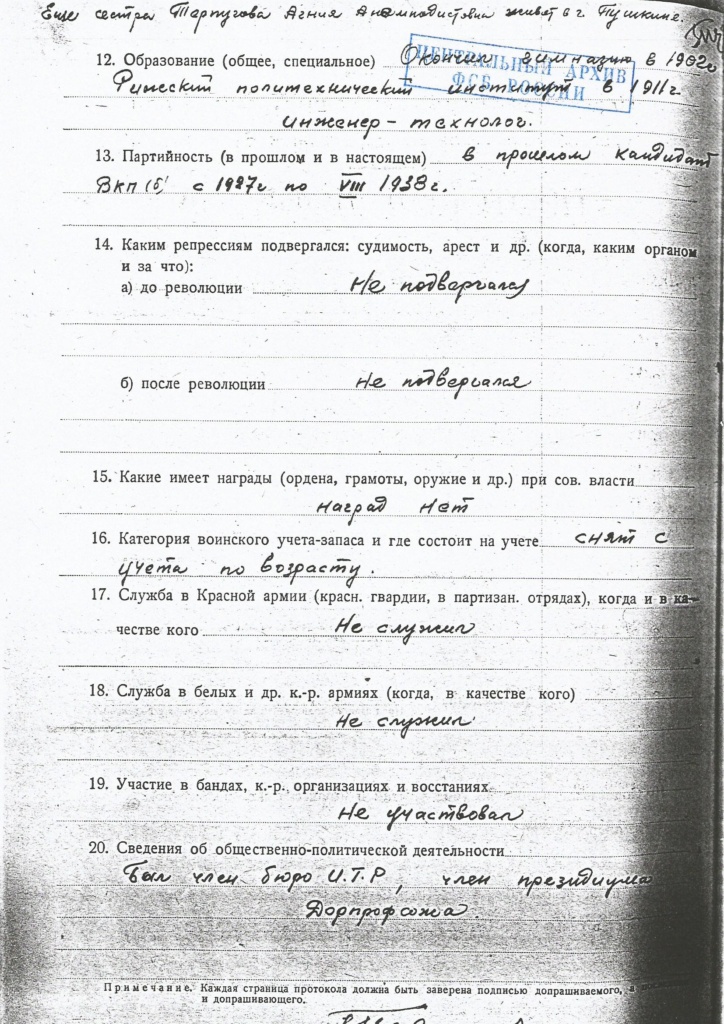 Еще сестра Тарпугова Агния Анемподистовна живет в г. Пушкине.
12. Образование (общее, специальное) Окончил гимназию в 1902г
ЦЕНТРАЛЬНЫЙ АРХИВ
ФСБ РОССИИ
Рижский политехнический институт в 1911г.
инженер-технолог.
13. Партийность (в прошлом и в настоящем) в прошлом кандидат
ВКП(б) с 1927г по VIII 1938г.
14. Каким репрессиям подвергался: судимость, арест и др. (когда, каким органом
и за что):
а) до революции Не подвергался
б) после революции Не подвергался
15. Какие имеет награды (ордена, грамоты, оружие и др.) при сов. власти
наград нет
16. Категория воинского учета-запаса и где состоит на учете снят с
учета по возрасту.
17. Служба в Красной армии (красн. гвардии, в партизан. отрядах), когда и в ка-
честве кого Не служил
18. Служба в белых и др. к.-р. армиях (когда, в качестве кого)
Не служил
19. Участие в бандах, к.-р. организациях и восстаниях
Не участвовал
20. Сведения об общественно-политической деятельности
Был член бюро И.Т.Р, член президиума
Дорпрофсожа
Примечание. Каждая страница протокола должна быть заверена подписью допрашиваемого,
и допрашивающего.